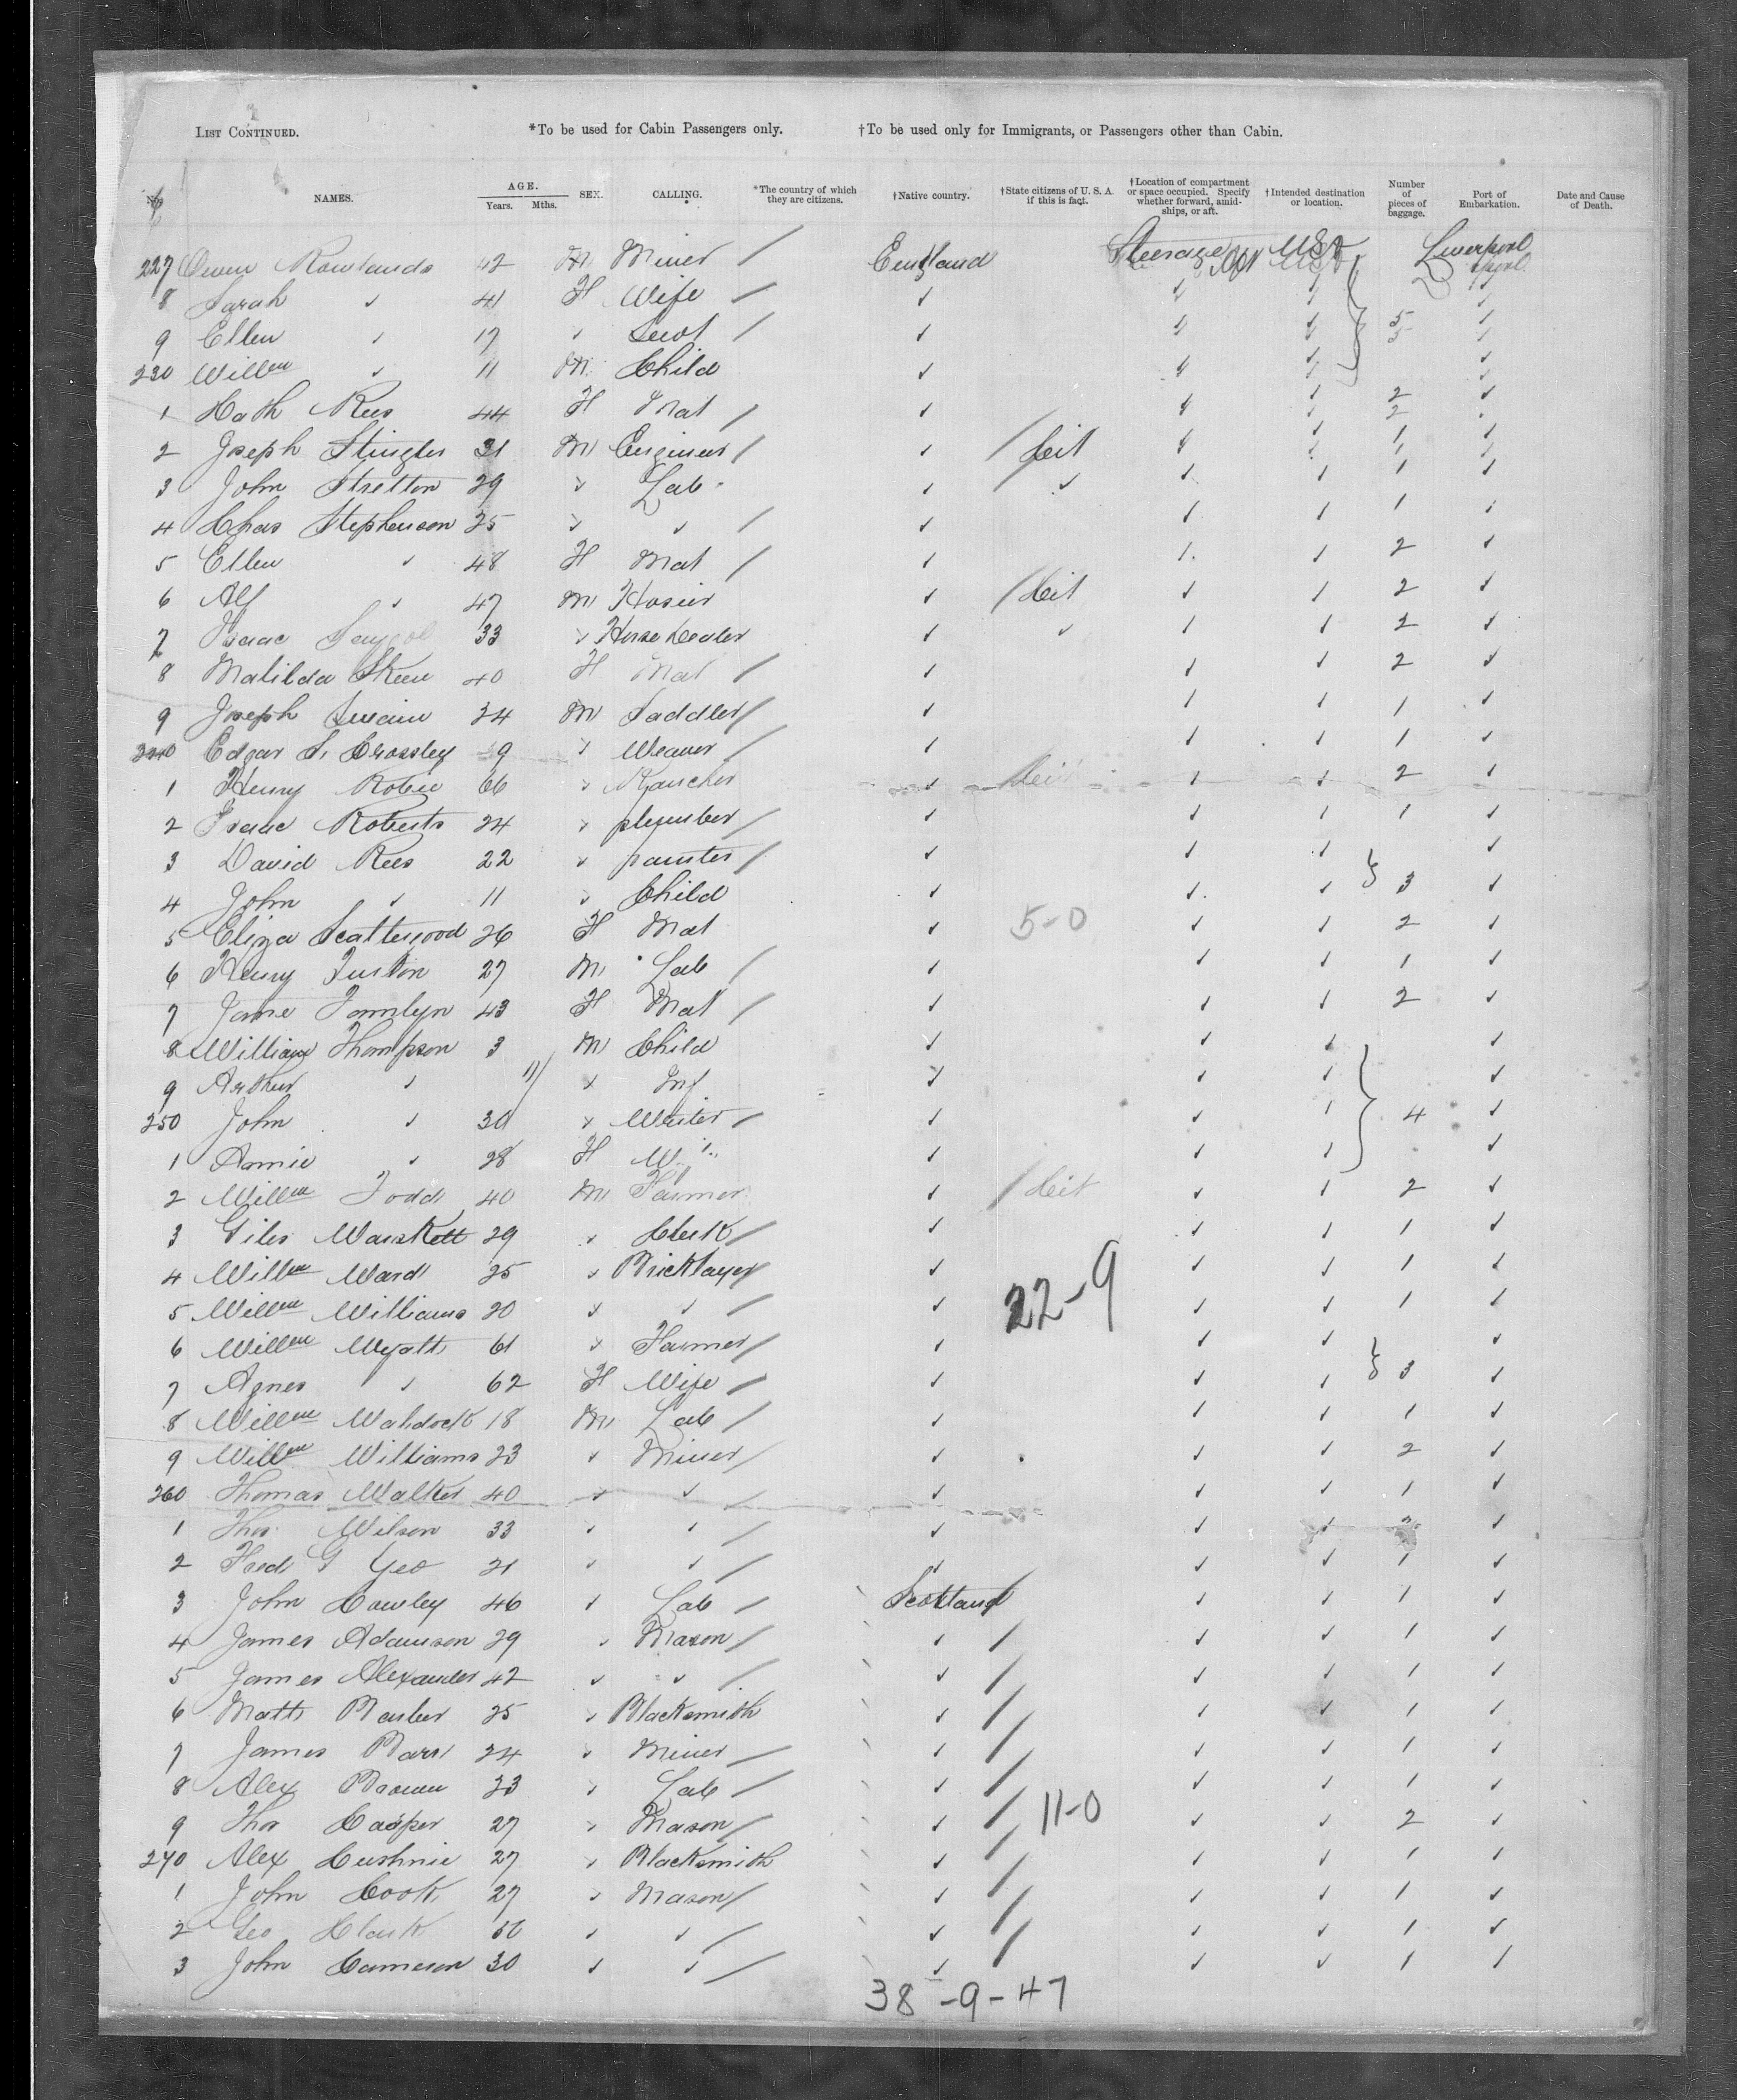 LIST CONTINUED. *To be used for Cabin Passengers only. †To be used only for Immigrants, or Passengers other than Cabin.
NAMES. AGE. Years. Mths. SEX. CALLING. *The country of which they are citizens. †Native country. †State citizens of U. S. A. if this is fact. †Location of compartment or space occupied. Specify whether forward, amidships, or aft. †Intended destination or location. Number of pieces of baggage. Port of Embarkation. Date and Cause of Death.
227 Owen Rowlands 42 M Miner / England Steerage USA Liverpool
8 Sarah ✓ 41 F Wife / ✓ ✓ ✓ ✓
9 Ellen ✓ 17 ✓ Servt / ✓ ✓ ✓ 5 ✓
230 Willm ✓ 11 M Child ✓ ✓ ✓ ✓
1 Cath Rees 44 F Mat / ✓ ✓ ✓ 2 ✓
2 Joseph 31 M Engineer / ✓ / Cit ✓ ✓ 1 ✓
3 John Stretton 29 ✓ Lab ✓ ✓ ✓ ✓ 1 ✓
4 Chas Stephenson 25 ✓ ✓ / ✓ ✓ ✓ 1 ✓
5 Ellen ✓ 48 F Mat / ✓ ✓ ✓ 2 ✓
6 Alf ✓ 47 M Hosier ✓ / Cit ✓ ✓ 2 ✓
7 Isaac 33 ✓ Horse Dealer ✓ ✓ ✓ ✓ 2 ✓
8 Matilda Skeen 40 F Mat / ✓ ✓ ✓ 2 ✓
9 Joseph Swain 34 M Saddler / ✓ ✓ ✓ 1 ✓
240 Edgar S. Crossley ✓ Weaver / ✓ ✓ ✓ 1 ✓
1 Henry 66 ✓ Rancher ✓ Cit ✓ ✓ 2 ✓
2 Isaac Roberts 24 ✓ plumber / ✓ ✓ ✓ 1 ✓
3 David Rees 22 ✓ painter / ✓ ✓ ✓ ✓
4 John ✓ 11 ✓ Child ✓ ✓ ✓ 3 ✓
5 Eliza Scattergood 26 F Mat ✓ 5-0 ✓ ✓ 2 ✓
6 Henry 27 M Lab / ✓ ✓ ✓ 1 ✓
7 Jane Tomlyn 43 F Mat / ✓ ✓ ✓ 2 ✓
8 William Thompson 3 M Child ✓ ✓ ✓ ✓
9 Arthur ✓ 11/ ✓ Inf ✓ ✓ ✓ ✓
250 John ✓ 30 ✓ / ✓ ✓ ✓ 4 ✓
1 Annie ✓ 28 F ✓ ✓ ✓ ✓
2 Willm Todd 40 M Farmer ✓ / Cit ✓ ✓ 2 ✓
3 Giles 29 ✓ Clerk / ✓ ✓ ✓ 1 ✓
4 Willm Ward 25 ✓ Bricklayer / ✓ ✓ ✓ 1 ✓
22-9
5 Willm Williams 20 ✓ ✓ / ✓ ✓ ✓ 1 ✓
6 Willm Wyatt 61 ✓ Farmer / ✓ ✓ ✓ ✓
7 Agnes ✓ 62 F Wife / ✓ ✓ ✓ 3 ✓
8 Willm 18 M Lab / ✓ ✓ ✓ 1 ✓
9 Willm Williams 23 ✓ Miner / ✓ ✓ ✓ 2 ✓
260 Thomas Walker 40 ✓ ✓ / ✓ ✓ ✓ 1 ✓
1 Thos Wilson 33 ✓ ✓ / ✓ ✓ ✓ 2 ✓
2 Fred G Yeo 21 ✓ ✓ / ✓ ✓ ✓ 1 ✓
3 John Cowley 46 ✓ Lab / Scotland / ✓ ✓ 1 ✓
4 James Adamson 29 ✓ Mason / ✓ / ✓ ✓ 1 ✓
5 James Alexander 42 ✓ ✓ / ✓ / ✓ ✓ 1 ✓
6 Matt 25 ✓ Blacksmith ✓ / ✓ ✓ 1 ✓
7 James Barr 24 ✓ Miner / ✓ / ✓ ✓ 1 ✓
8 Alex Brown 23 ✓ Lab / ✓ / ✓ ✓ 1 ✓
9 Thos Cooper 27 ✓ Mason / ✓ / 11-0 ✓ ✓ 2 ✓
270 Alex Cushnie 27 ✓ Blacksmith ✓ / ✓ ✓ 1 ✓
1 John Cook 27 ✓ Mason / ✓ / ✓ ✓ 1 ✓
2 Geo Clark ✓ ✓ / ✓ / ✓ ✓ 1 ✓
3 John Cameron 30 ✓ ✓ / ✓ / ✓ ✓ 1 ✓
38-9-47